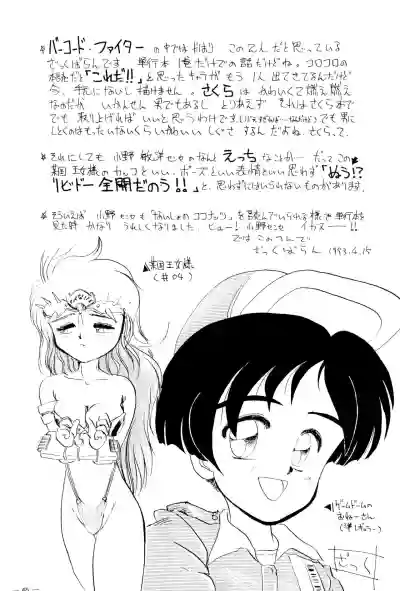 ＊バーコード・ファイター の中ではやはり この2人だと思っている
ざっくばらんです 単行本 1巻だけでの話だけどね。コロコロの
本誌だと「これだ!!」と思ったキャラが もう 1人 出てきてるんだけど
今、手元にないし描けません。さくら は かわいくて燃え燃え
なのだが いかんせん 男でもあるし とりあえず それはさくらまで
でも 取り上げれば いいと思うわけでまし でも 男に
しとくのはもったいないくらいかわいい しぐさ するんだよね、さくらって。
＊それにしても 小野 敏洋 センセのなんと えっち なことか… だって この
某国 王女様 の カッコといい、ポーズといい表情といい 思わず「ぬう!?
リビドー 全開だのう!!」と、思わずにはいられないものがあります。
＊そういえば 小野センセも を読んでいられる様で単行本を
見た時 かなり うれしくなりました、ビュー! 小野センセ イカスーー!!
では このへんで
ざっくばらん 1993.4.15
▲某国王女様
(#04)
ゲームドームの
おねーさん
(準レギュラー)
ざっく